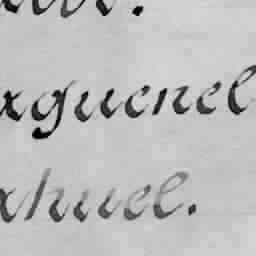 xguenel
xhuel.